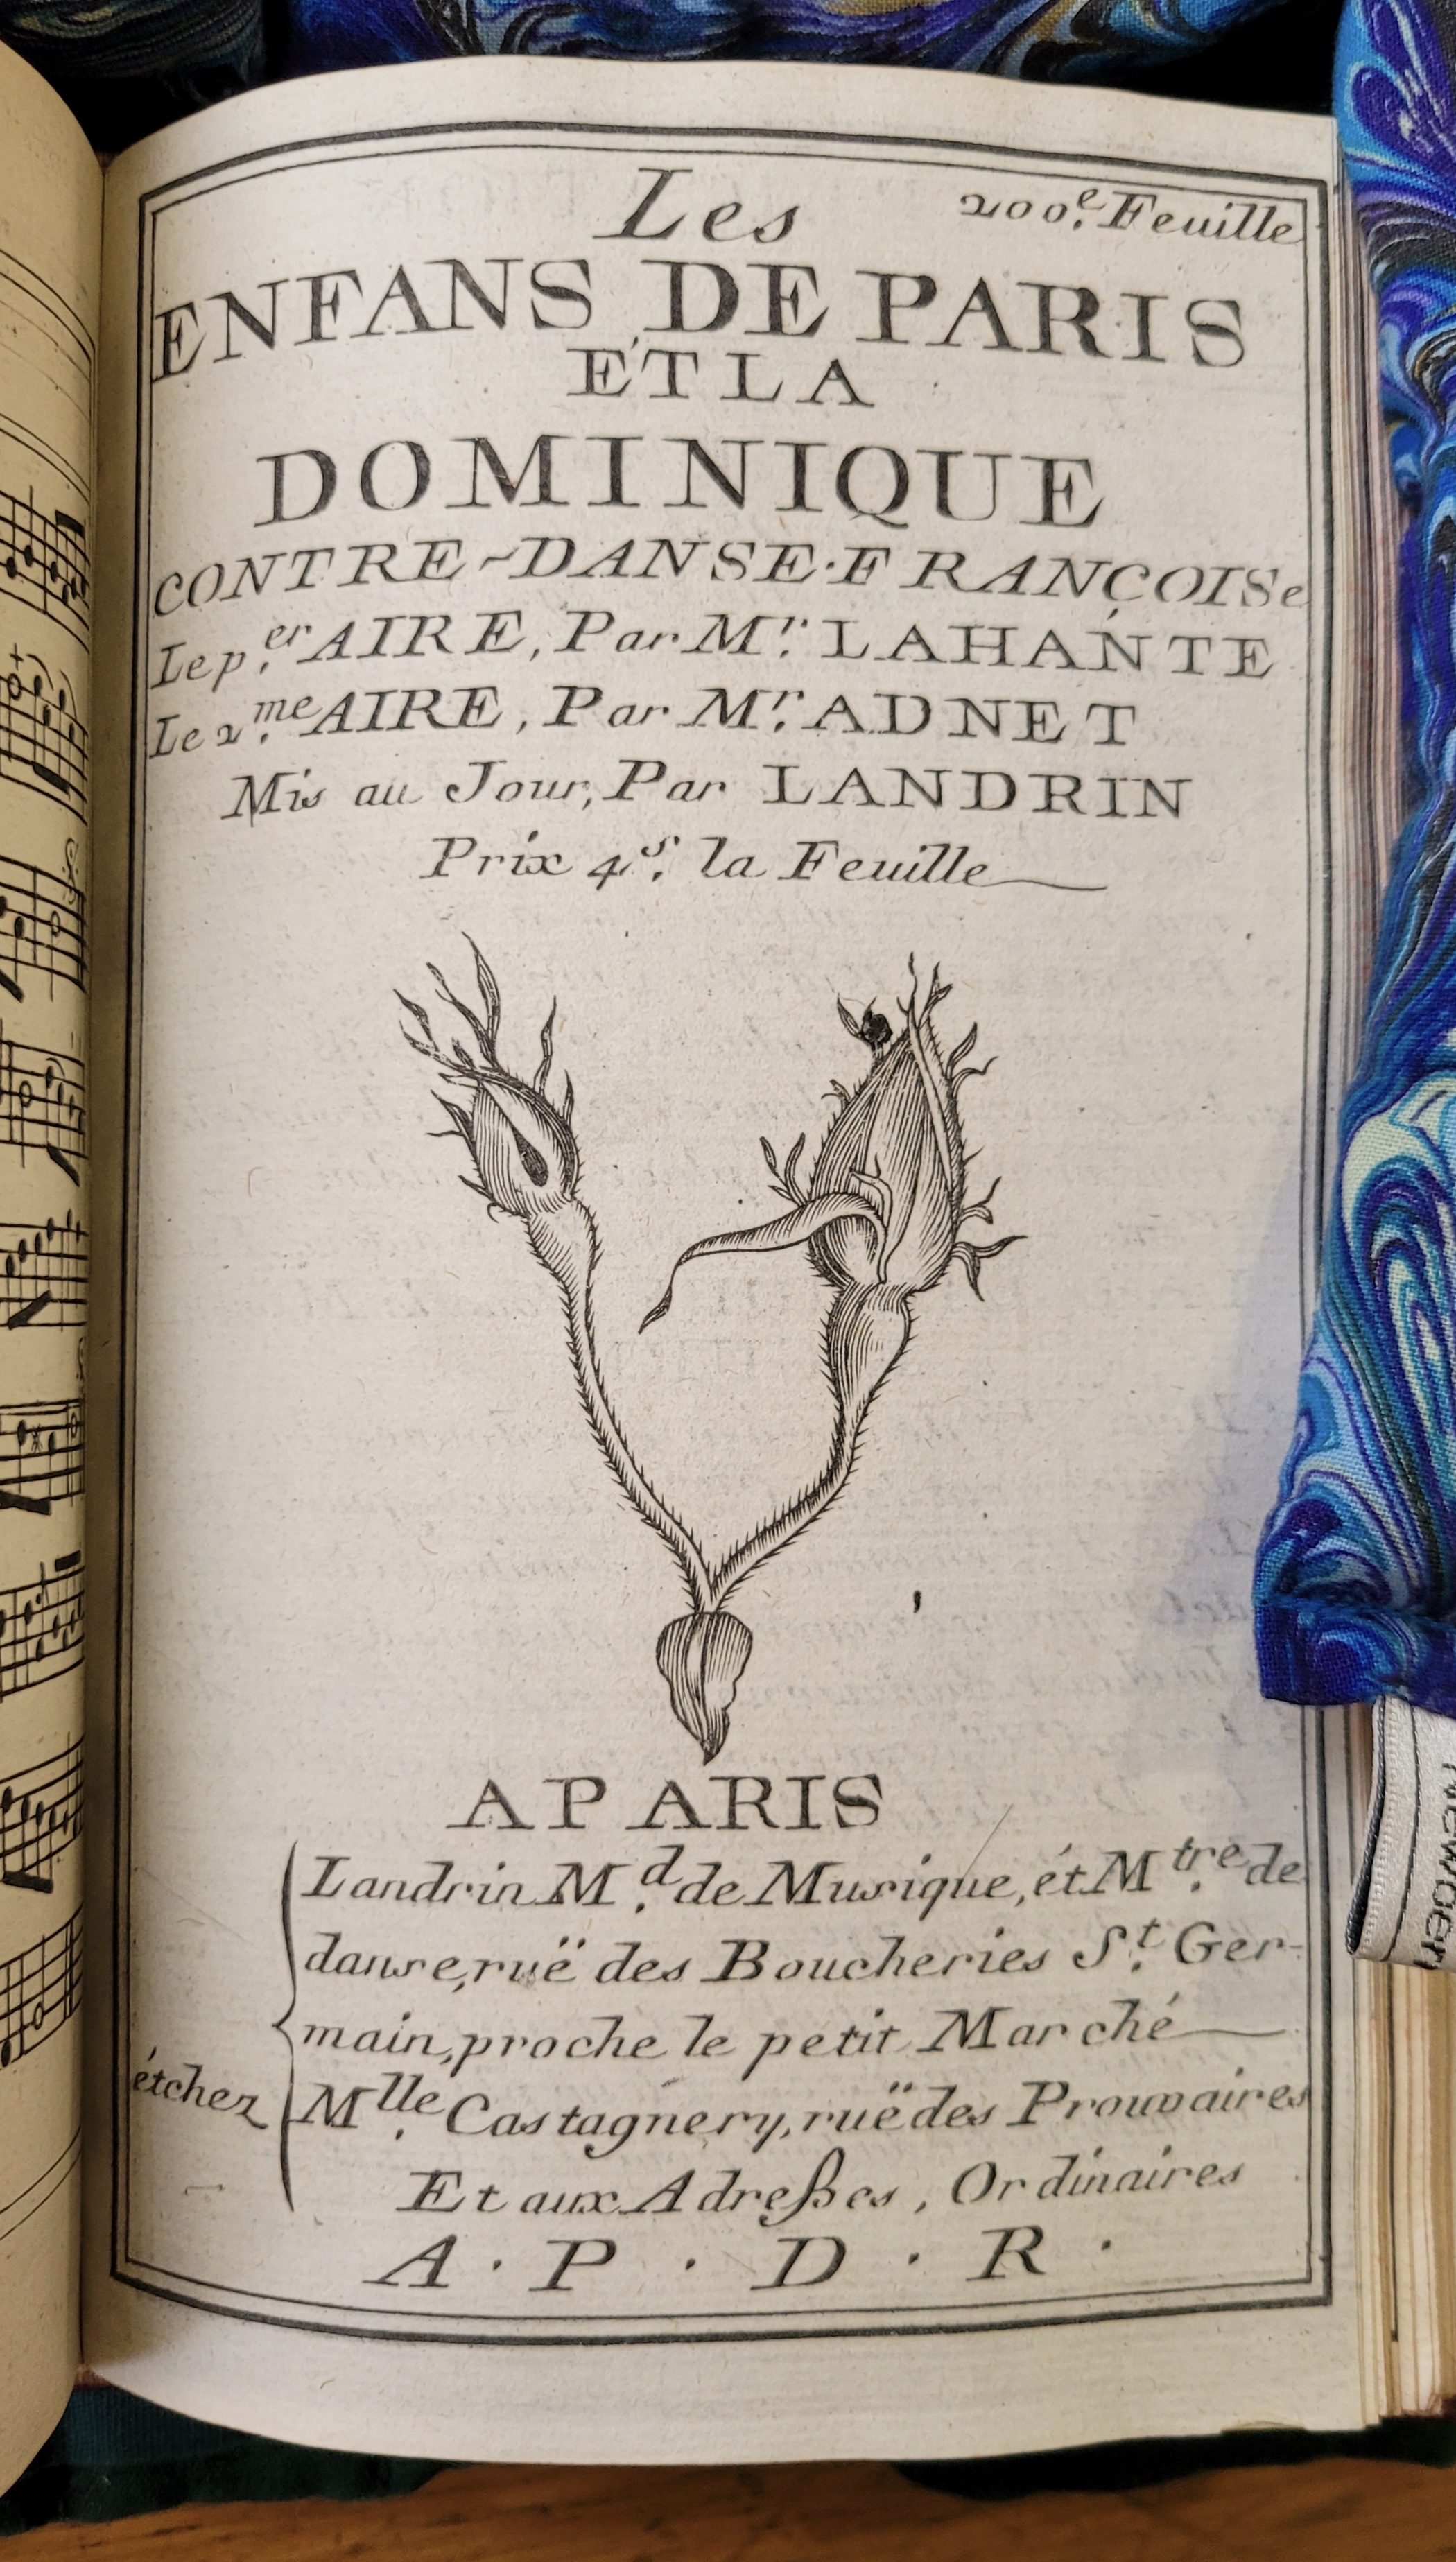 Les
200.e Feuille
ENFANS DE PARIS
ÉT LA
DOMINIQUE
CONTRE-DANSE·FRANÇOISe
Le p.er AIRE, Par M.r LAHANTE
Le 2.me AIRE, Par M.r ADNET
Mis au Jour, Par LANDRIN
Prix 4.s la Feuille
A PARIS
Landrin M.d de Musique, ét M.tre de
danse, ruë des Boucheries S.t Ger-
main, proche le petit Marché
ét chez
M.lle Castagnery, ruë des Prouvaires
Et aux Adreßes, Ordinaires
A · P · D · R ·